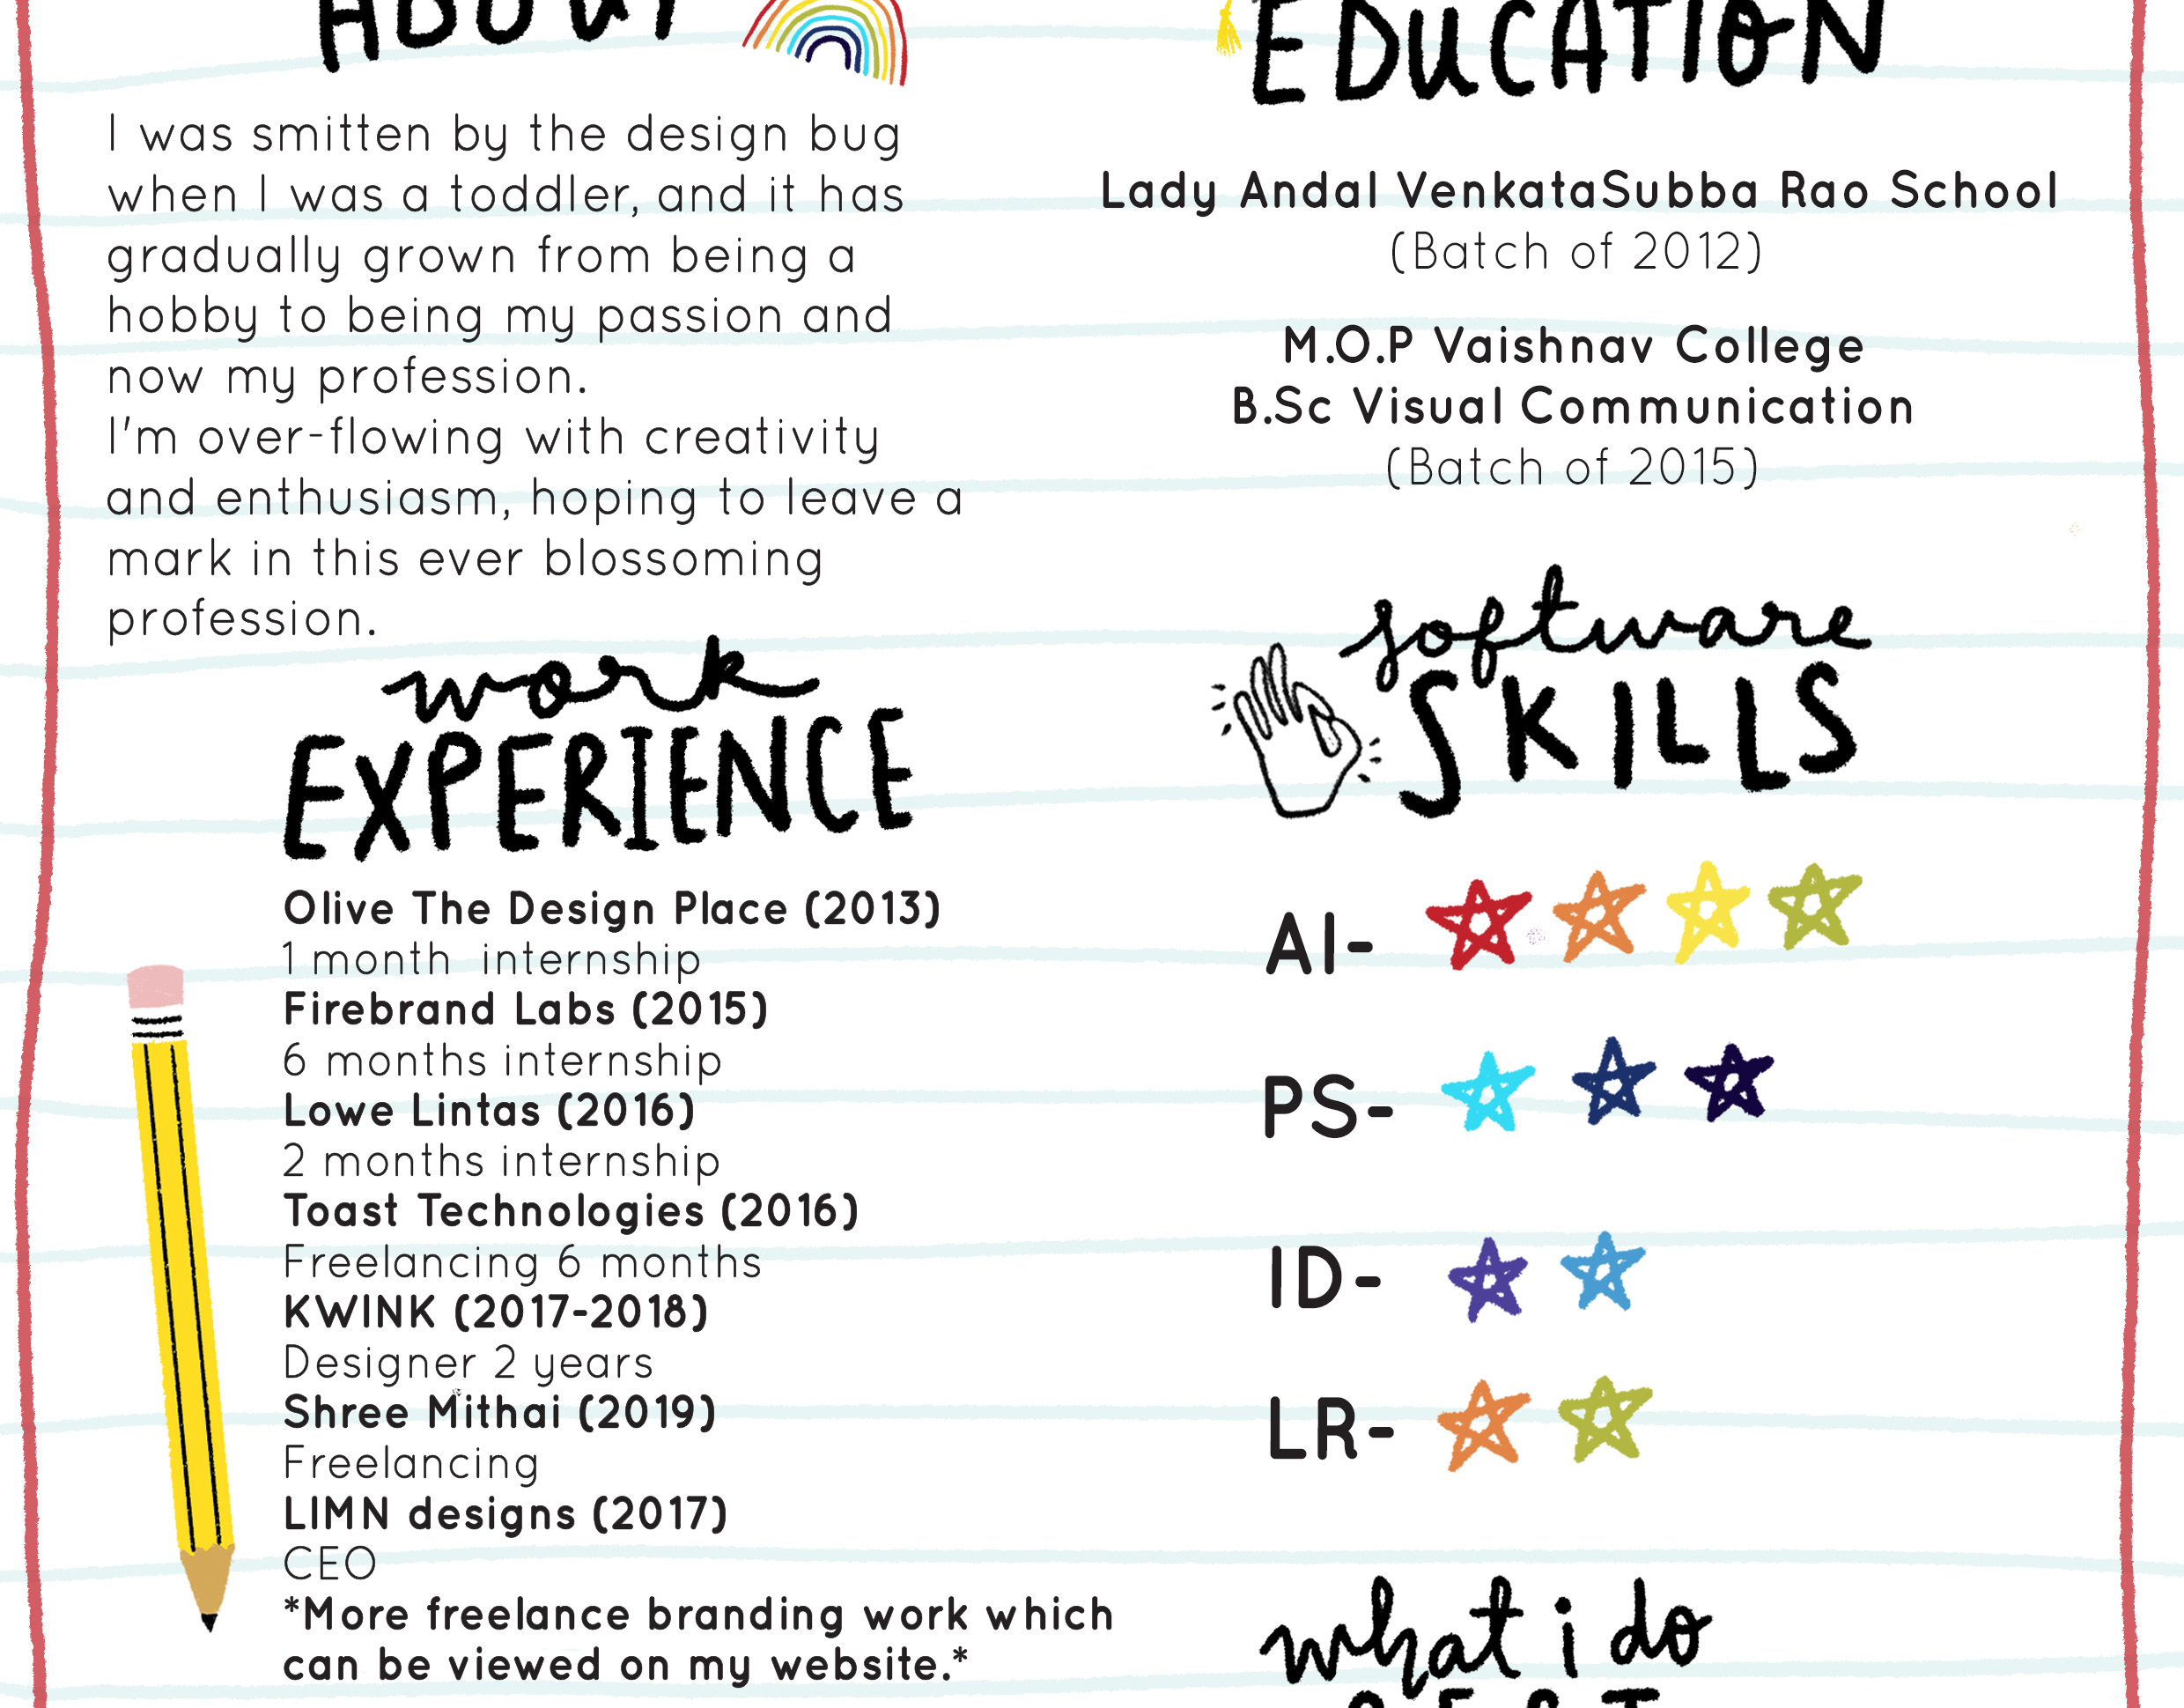 ABOUT
I was smitten by the design bug
when I was a toddler, and it has
gradually grown from being a
hobby to being my passion and
now my profession.
I'm over-flowing with creativity
and enthusiasm, hoping to leave a
mark in this ever blossoming
profession.
work
EXPERIENCE
Olive The Design Place (2013)
1 month internship
Firebrand Labs (2015)
6 months internship
Lowe Lintas (2016)
2 months internship
Toast Technologies (2016)
Freelancing 6 months
KWINK (2017-2018)
Designer 2 years
Shree Mithai (2019)
Freelancing
LIMN designs (2017)
CEO
*More freelance branding work which
can be viewed on my website.*
EDUCATION
Lady Andal VenkataSubba Rao School
(Batch of 2012)
M.O.P Vaishnav College
B.Sc Visual Communication
(Batch of 2015)
software
SKILLS
AI-
PS-
ID-
LR-
what i do